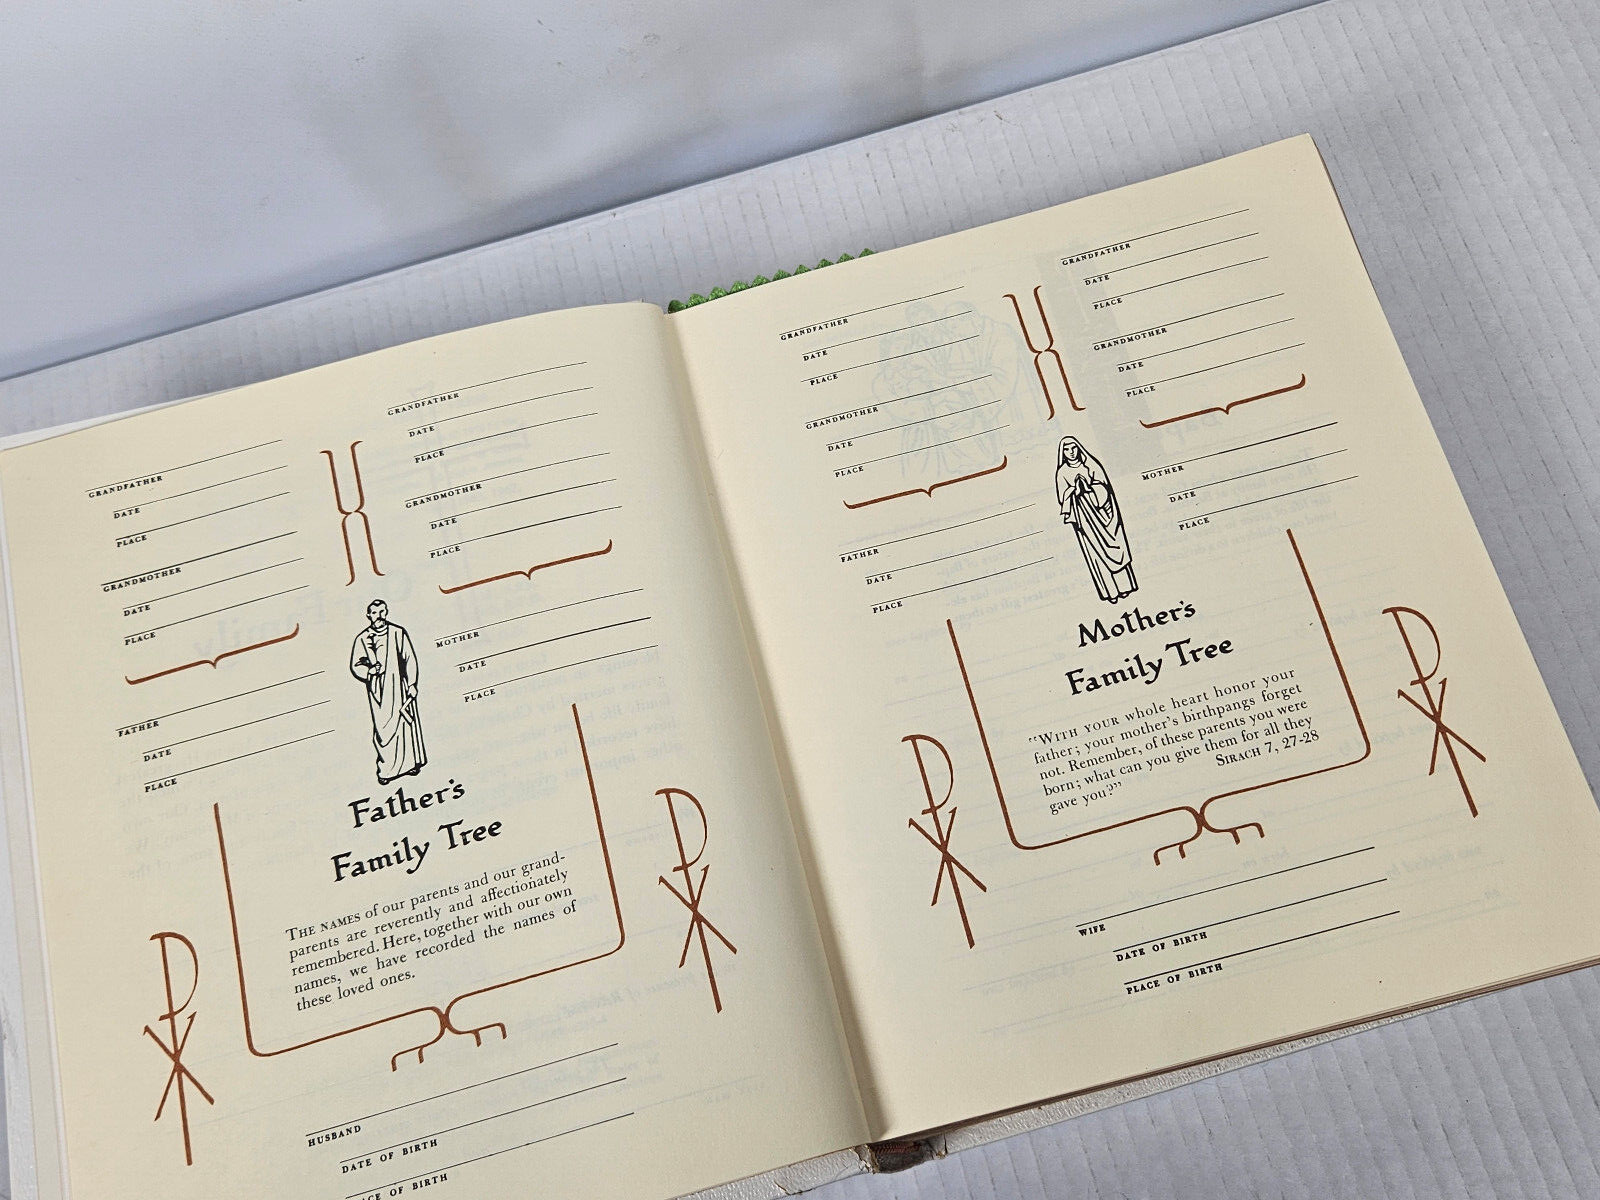 GRANDFATHER
DATE
PLACE
GRANDMOTHER
DATE
PLACE
FATHER
DATE
PLACE
GRANDFATHER
DATE
PLACE
GRANDMOTHER
DATE
PLACE
MOTHER
DATE
PLACE
Father's
Family Tree
THE NAMES of our parents and our grand-
parents are reverently and affectionately
remembered. Here, together with our own
names, we have recorded the names of
these loved ones.
HUSBAND
DATE OF BIRTH
PLACE OF BIRTH
GRANDFATHER
DATE
PLACE
GRANDMOTHER
DATE
PLACE
FATHER
DATE
PLACE
GRANDFATHER
DATE
PLACE
GRANDMOTHER
DATE
PLACE
MOTHER
DATE
PLACE
Mother's
Family Tree
"WITH YOUR whole heart honor your
father; your mother's birthpangs forget
not. Remember, of these parents you were
born; what can you give them for all they
gave you?" SIRACH 7, 27-28
WIFE
DATE OF BIRTH
PLACE OF BIRTH